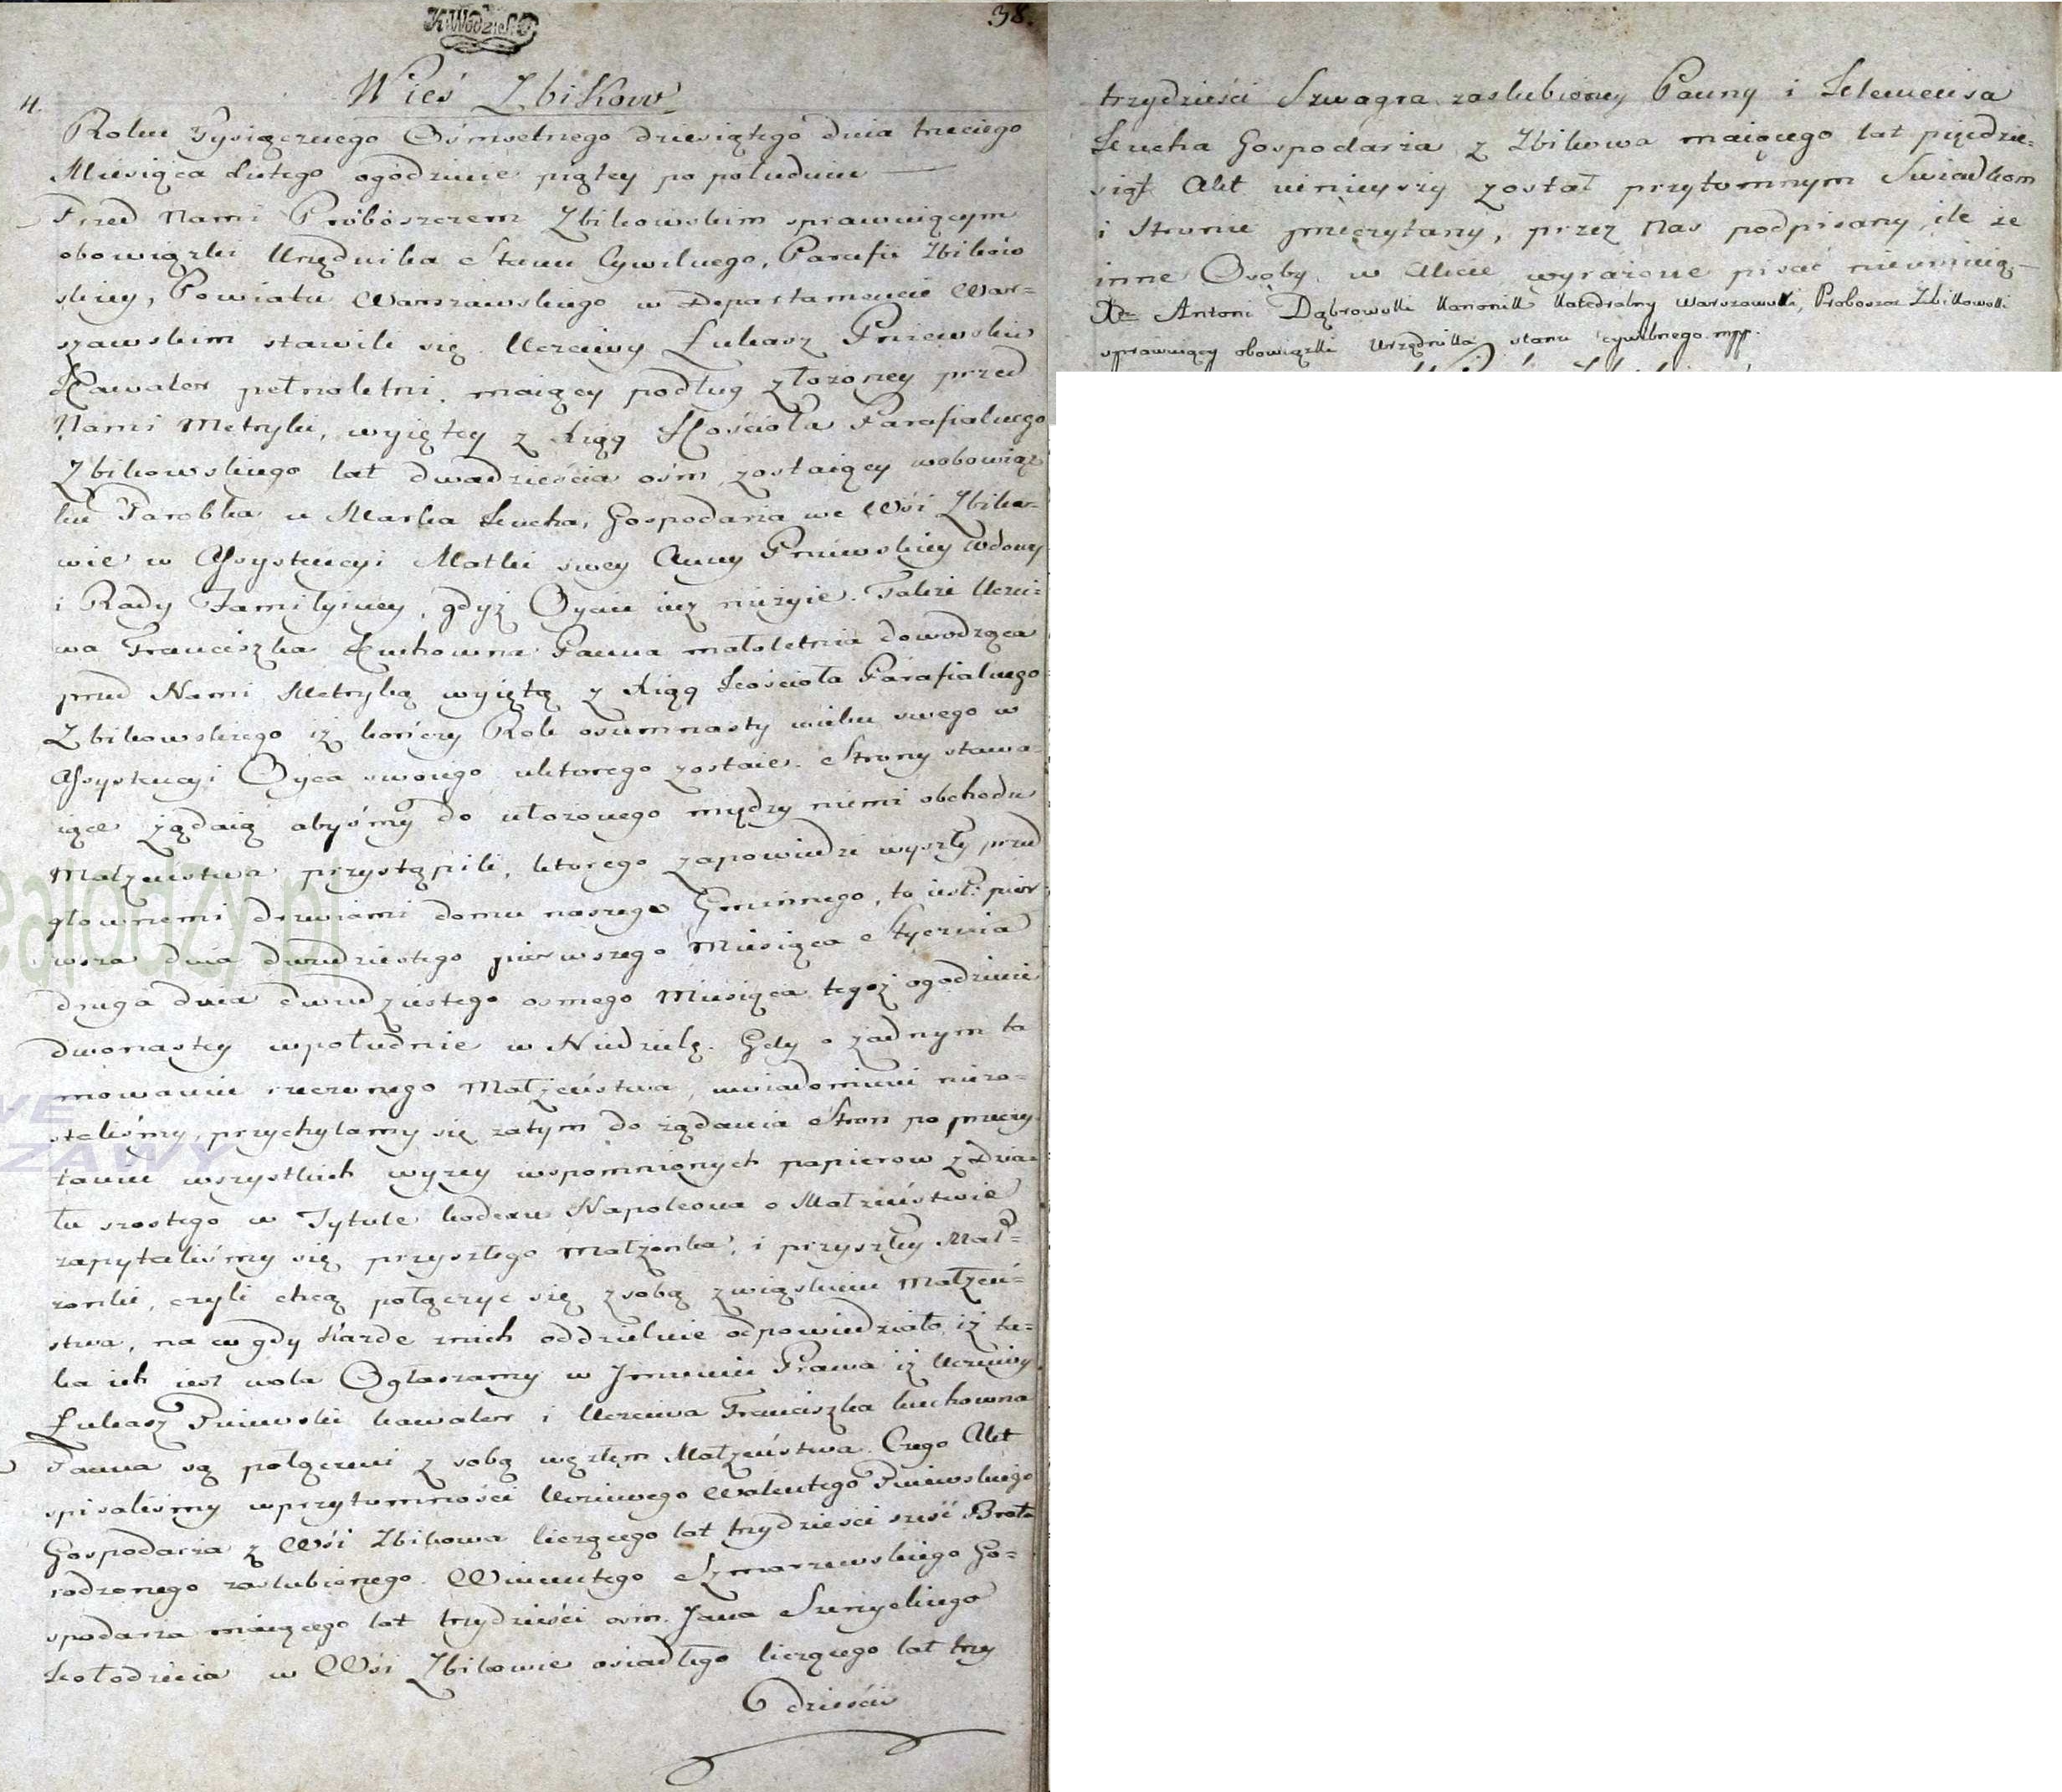 K: Wodzick
38.
Wieś Zbikow
4.
Roku Tysiącznego Osmsetnego dziesiątego dnia trzeciego
Miesiąca Lutego ogodzinie piątey po południu
Przed Nami Proboszczem Zbikowskim sprawuiącym
obowiązki Urzędnika Stanu Cywilnego, Parafii Zbikow
skiey, Powiatu Warszawskiego w Departamencie War=
szawskim stawili się Uczciwy Łukasz Pniewski
Kawaler pełnoletni, maiący podług złożoney przed
Nami Metryki, wyiętey z Xiąg Kościoła Parafialnego
Zbikowskiego lat dwadzieścia ośm zostaiący wobowiąz
ku Parobka u Marka Kucha, Gospodarza we Wsi Zbiko=
wie w Assystencyi Matki swey Anny Pniewskiey wdowy
i Rady Familyiney, gdyż Oyciec iuz nieżyie. Takze Uczci=
wa Franciszka Kuchowna Panna małoletnia dowodząca
przed Nami Metryką wyiętą z Xiąg Kościoła Parafialnego
Zbikowskiego iż kończy Rok osumnasty wieku swego w
Assystencyi Oyca swoiego uktorego zostaie. Strony stawa=
iące żądaią abyśmy do ułożonego między niemi obchodu
Małżeństwa przystąpili, ktorego zapowiedzi wyszły przed
głownemi drzwiami domu naszego Gminnego, to iest: pier=
wsza dnia dwudziestego pierwszego Miesiąca Stycznia
druga dnia dwudziestego osmego Miesiąca tegoż ogodzinie
dwonastey wpołudnie w Niedzielę. Gdy o żadnym ta
mowaniu rzeczonego Małżeństwa, uwiadomieni niezo=
staliśmy, przychylamy się zatym do żądania Stron po przeczy
taniu wszystkich wyzey wspomnionych papierow z Dzia=
łu szostego w Tytule kodexu Napoleona o Małzeństwie
zapytaliśmy się przyszłego Małżonka, i przyszłey Mał=
zonki, czyli chcą połączyc się zsobą związkiem Małżeń=
stwa, na co gdy Każde znich oddzielnie odpowiedziało, iż ta=
ka ich iest wola Ogłaszamy w Jmieniu Prawa iż Uczciwy
Łukasz Pniewski kawaler i Uczciwa Franciszka kuchowna
Panna są połączeni z sobą węzłem Małżeństwa. Czego Akt
spisaliśmy wprzytomności Uczciwego Walentego Pniewskiego
Gospodarza z Wsi Zbikowa liczącego lat trzydzieści sześć Brata
rodzonego zaslubionego. Wincentego Szmarzewskiego Go=
spodarza maiącego lat trzydzieści osm. Jana
Kołodzieia w Wsi Zbikowie osiadłego liczącego lat trzy
dzieści
trzydzieści Szwagra zaslubioney Panny i Klemensa
Kucha Gospodarza z Zbikowa maiącego lat pięćdzie=
siąt Akt ninieyszy został przytomnym Swiadkom
i Stronie przeczytany, przez Nas podpisany, ile że
inne Osoby w Akcie wyrażone pisać nieumieią
Xdz Antoni Dąbrowski Kanonik Katedralny Warszawski, Proboszcz Zbikowski
sprawuiący obowiązki Urzędnika stanu cywilnego. mpp.
ealodzy.pl
WE
ZAWY